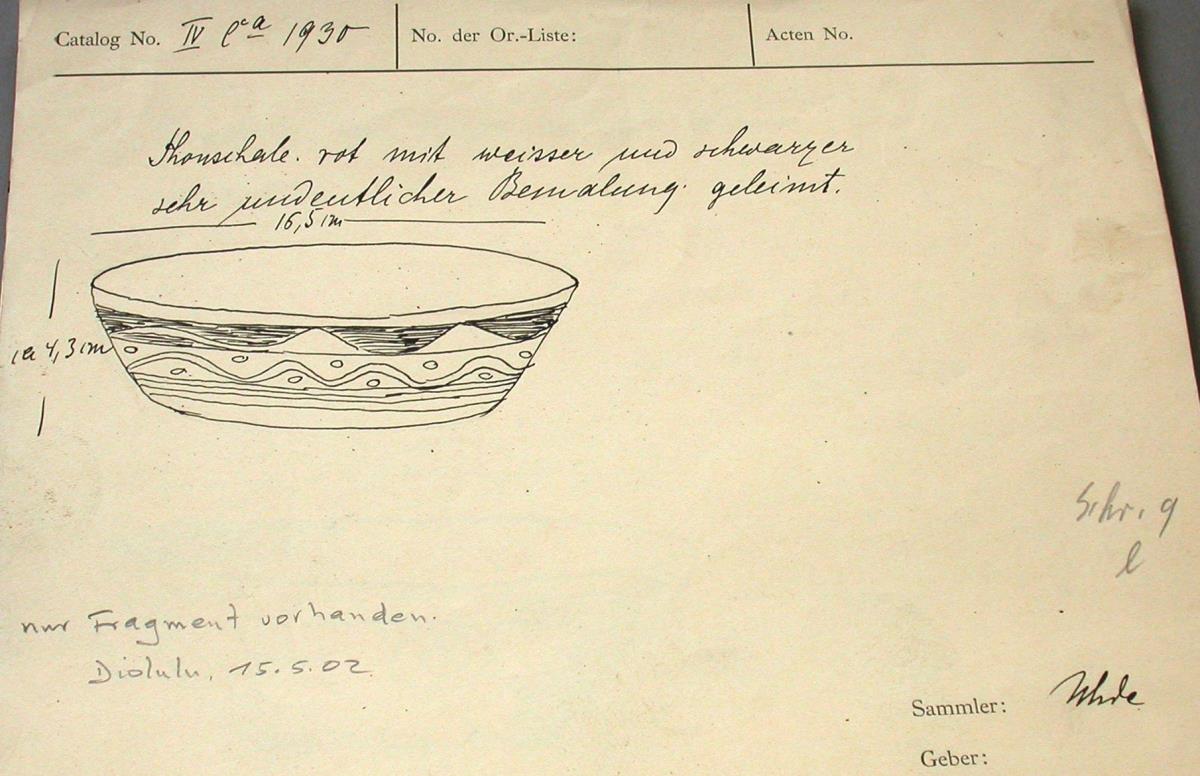 Catalog No. IV Ca 1930
No. der Or.-Liste:
Acten No.
Thonschale. rot mit weisser und schwarzer
sehr undeutlicher Bemalung. geleimt.
16,5 cm
ca 4,3 cm
Schr. 9
l
nur Fragment vorhanden.
15.5.02
Sammler: Uhde
Geber: